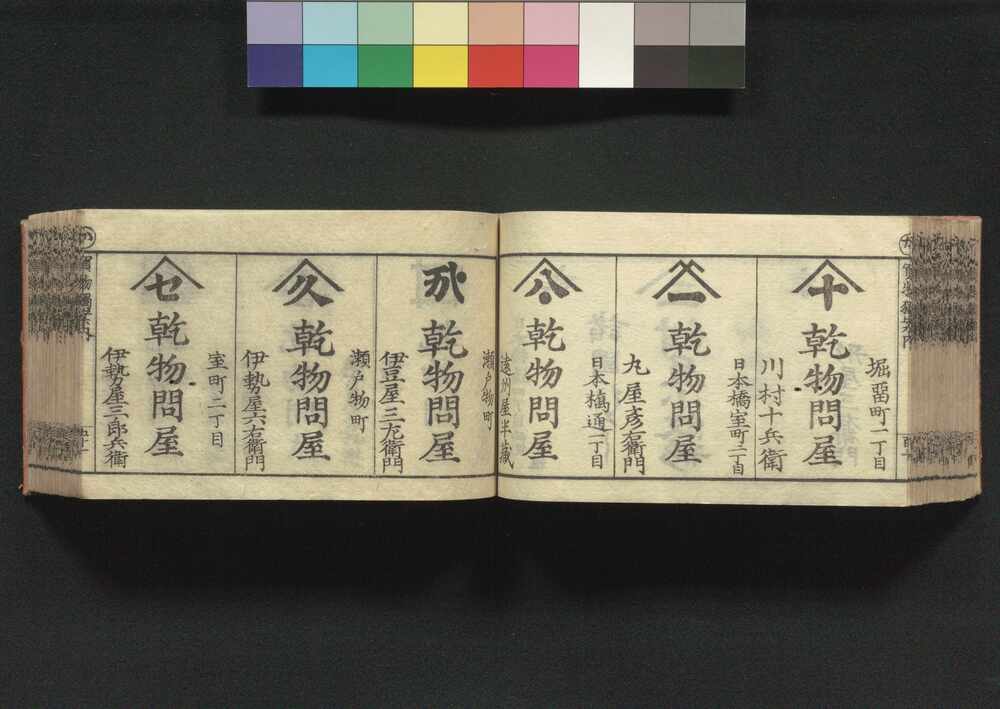 堀留町一丁目
十
乾物問屋
川村十兵衛
日本橋室町二丁目
一
乾物問屋
丸屋彦右衛門
日本橋通一丁目
八
乾物問屋
遠州屋半蔵
瀬戸物町
乾物問屋
伊豆屋三右衛門
瀬戸物町
久
乾物問屋
伊勢屋六右衛門
室町二丁目
セ
乾物問屋
伊勢屋三郎兵衛